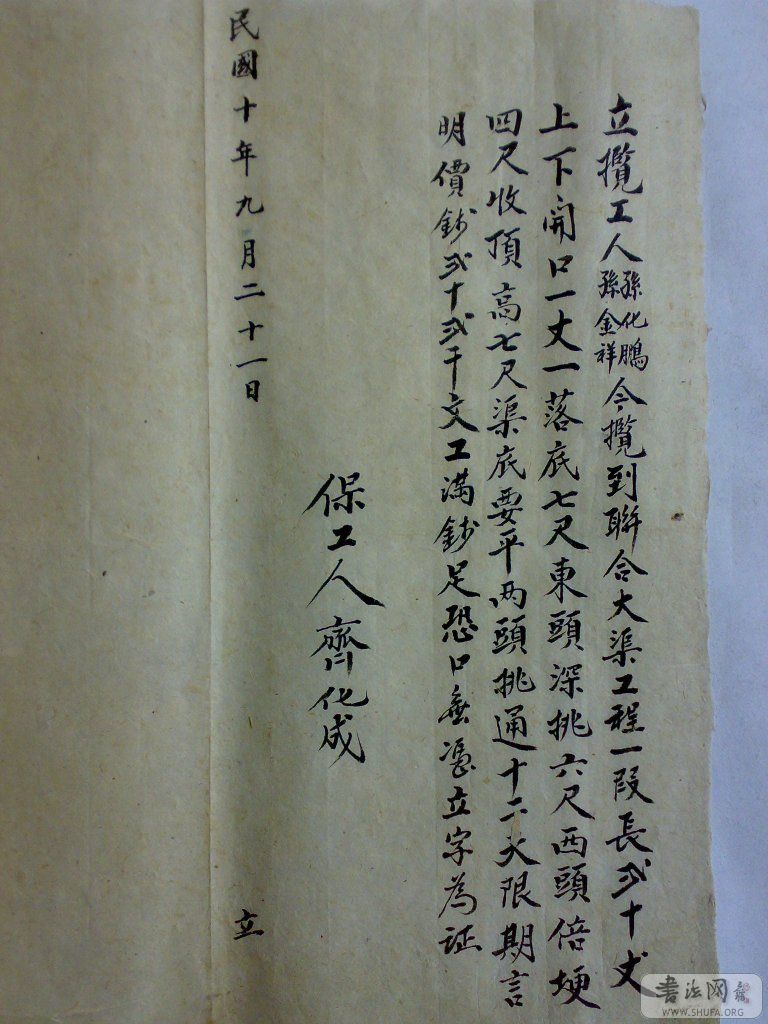 立攬工人孫化鵬孫金祥今攬到聯合大渠工程一段長弍十丈
上下開口一丈一落底七尺東頭深挑六尺西頭倍埂
四尺收頂高七尺渠底要平两頭挑通十二天限期言
明價鈔弍十弍千文工滿鈔足恐口無憑立字為証
保工人齊化成
民國十年九月二十一日 立
書法网
WWW.SHUFA.ORG